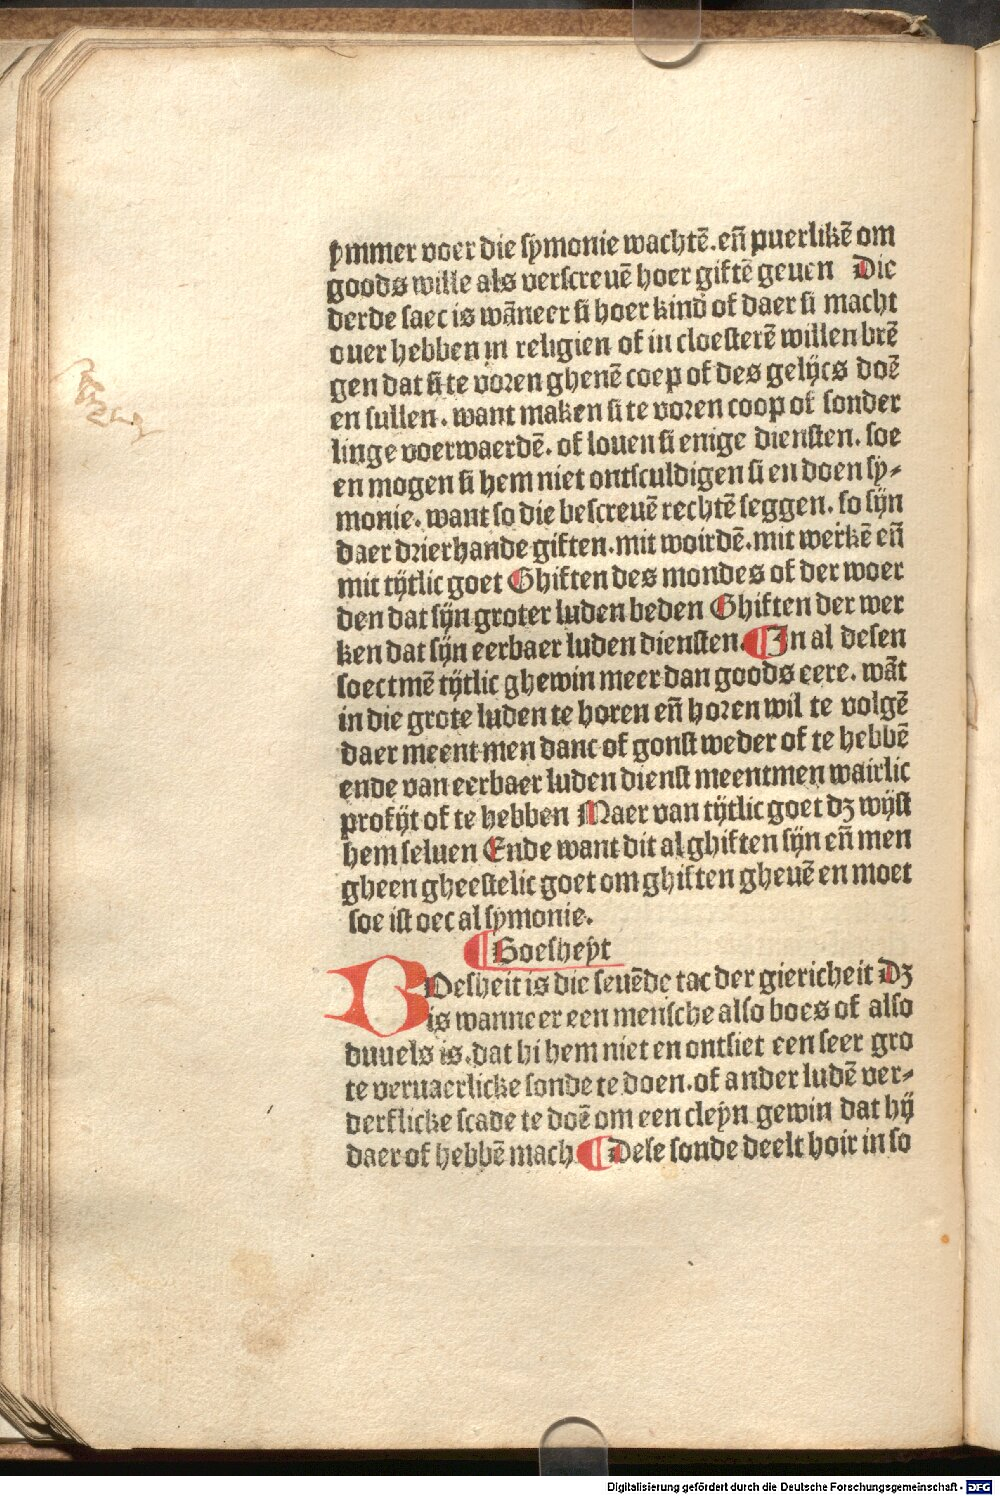 ymmer voer die symonie wachtē. en̄ puerlikē om
goods wille als verscreuē hoer giftē geuen Die
derde saec is wāneer si hoer kind of daer si macht
ouer hebben in religien of in cloesterē willen brē
gen dat si te voren ghenē coep of des gelijcs doē
en sullen. want maken si te voren coop of sonder
linge voerwaerdē. of louen si enige diensten. soe
en mogen si hem niet ontsculdigen si en doen sy-
monie. want so die bescreuē rechtē seggen. so sijn
daer drierhande giften. mit woirdē. mit werkē en̄
mit tijtlic goet Ghiften des mondes of der woer
den dat sijn groter luden beden Ghiften der wer
ken dat sijn eerbaer luden diensten. ¶ In al desen
soectmē tijtlic ghewin meer dan goods eere. wāt
in die grote luden te horen en̄ horen wil te volgē
daer meent men danc of gonst weder of te hebbē
ende van eerbaer luden dienst meentmen wairlic
profijt of te hebben Maer van tijtlic goet dꝫ wijst
hem seluen Ende want dit al ghiften sijn en̄ men
gheen gheestelic goet om ghiften gheuē en moet
soe ist oec al symonie.
¶ Boesheyt
BOesheit is die seuēde tac der giericheit Dꝫ
is wanneer een mensche also boes of also
duuels is. dat hi hem niet en ontsiet een seer gro
te veruaerlicke sonde te doen. of ander ludē ver-
derflicke scade te doē om een cleyn gewin dat hij
daer of hebbē mach ¶ Dese sonde deelt hoir in so
Digitalisierung gefördert durch die Deutsche Forschungsgemeinschaft - DFG